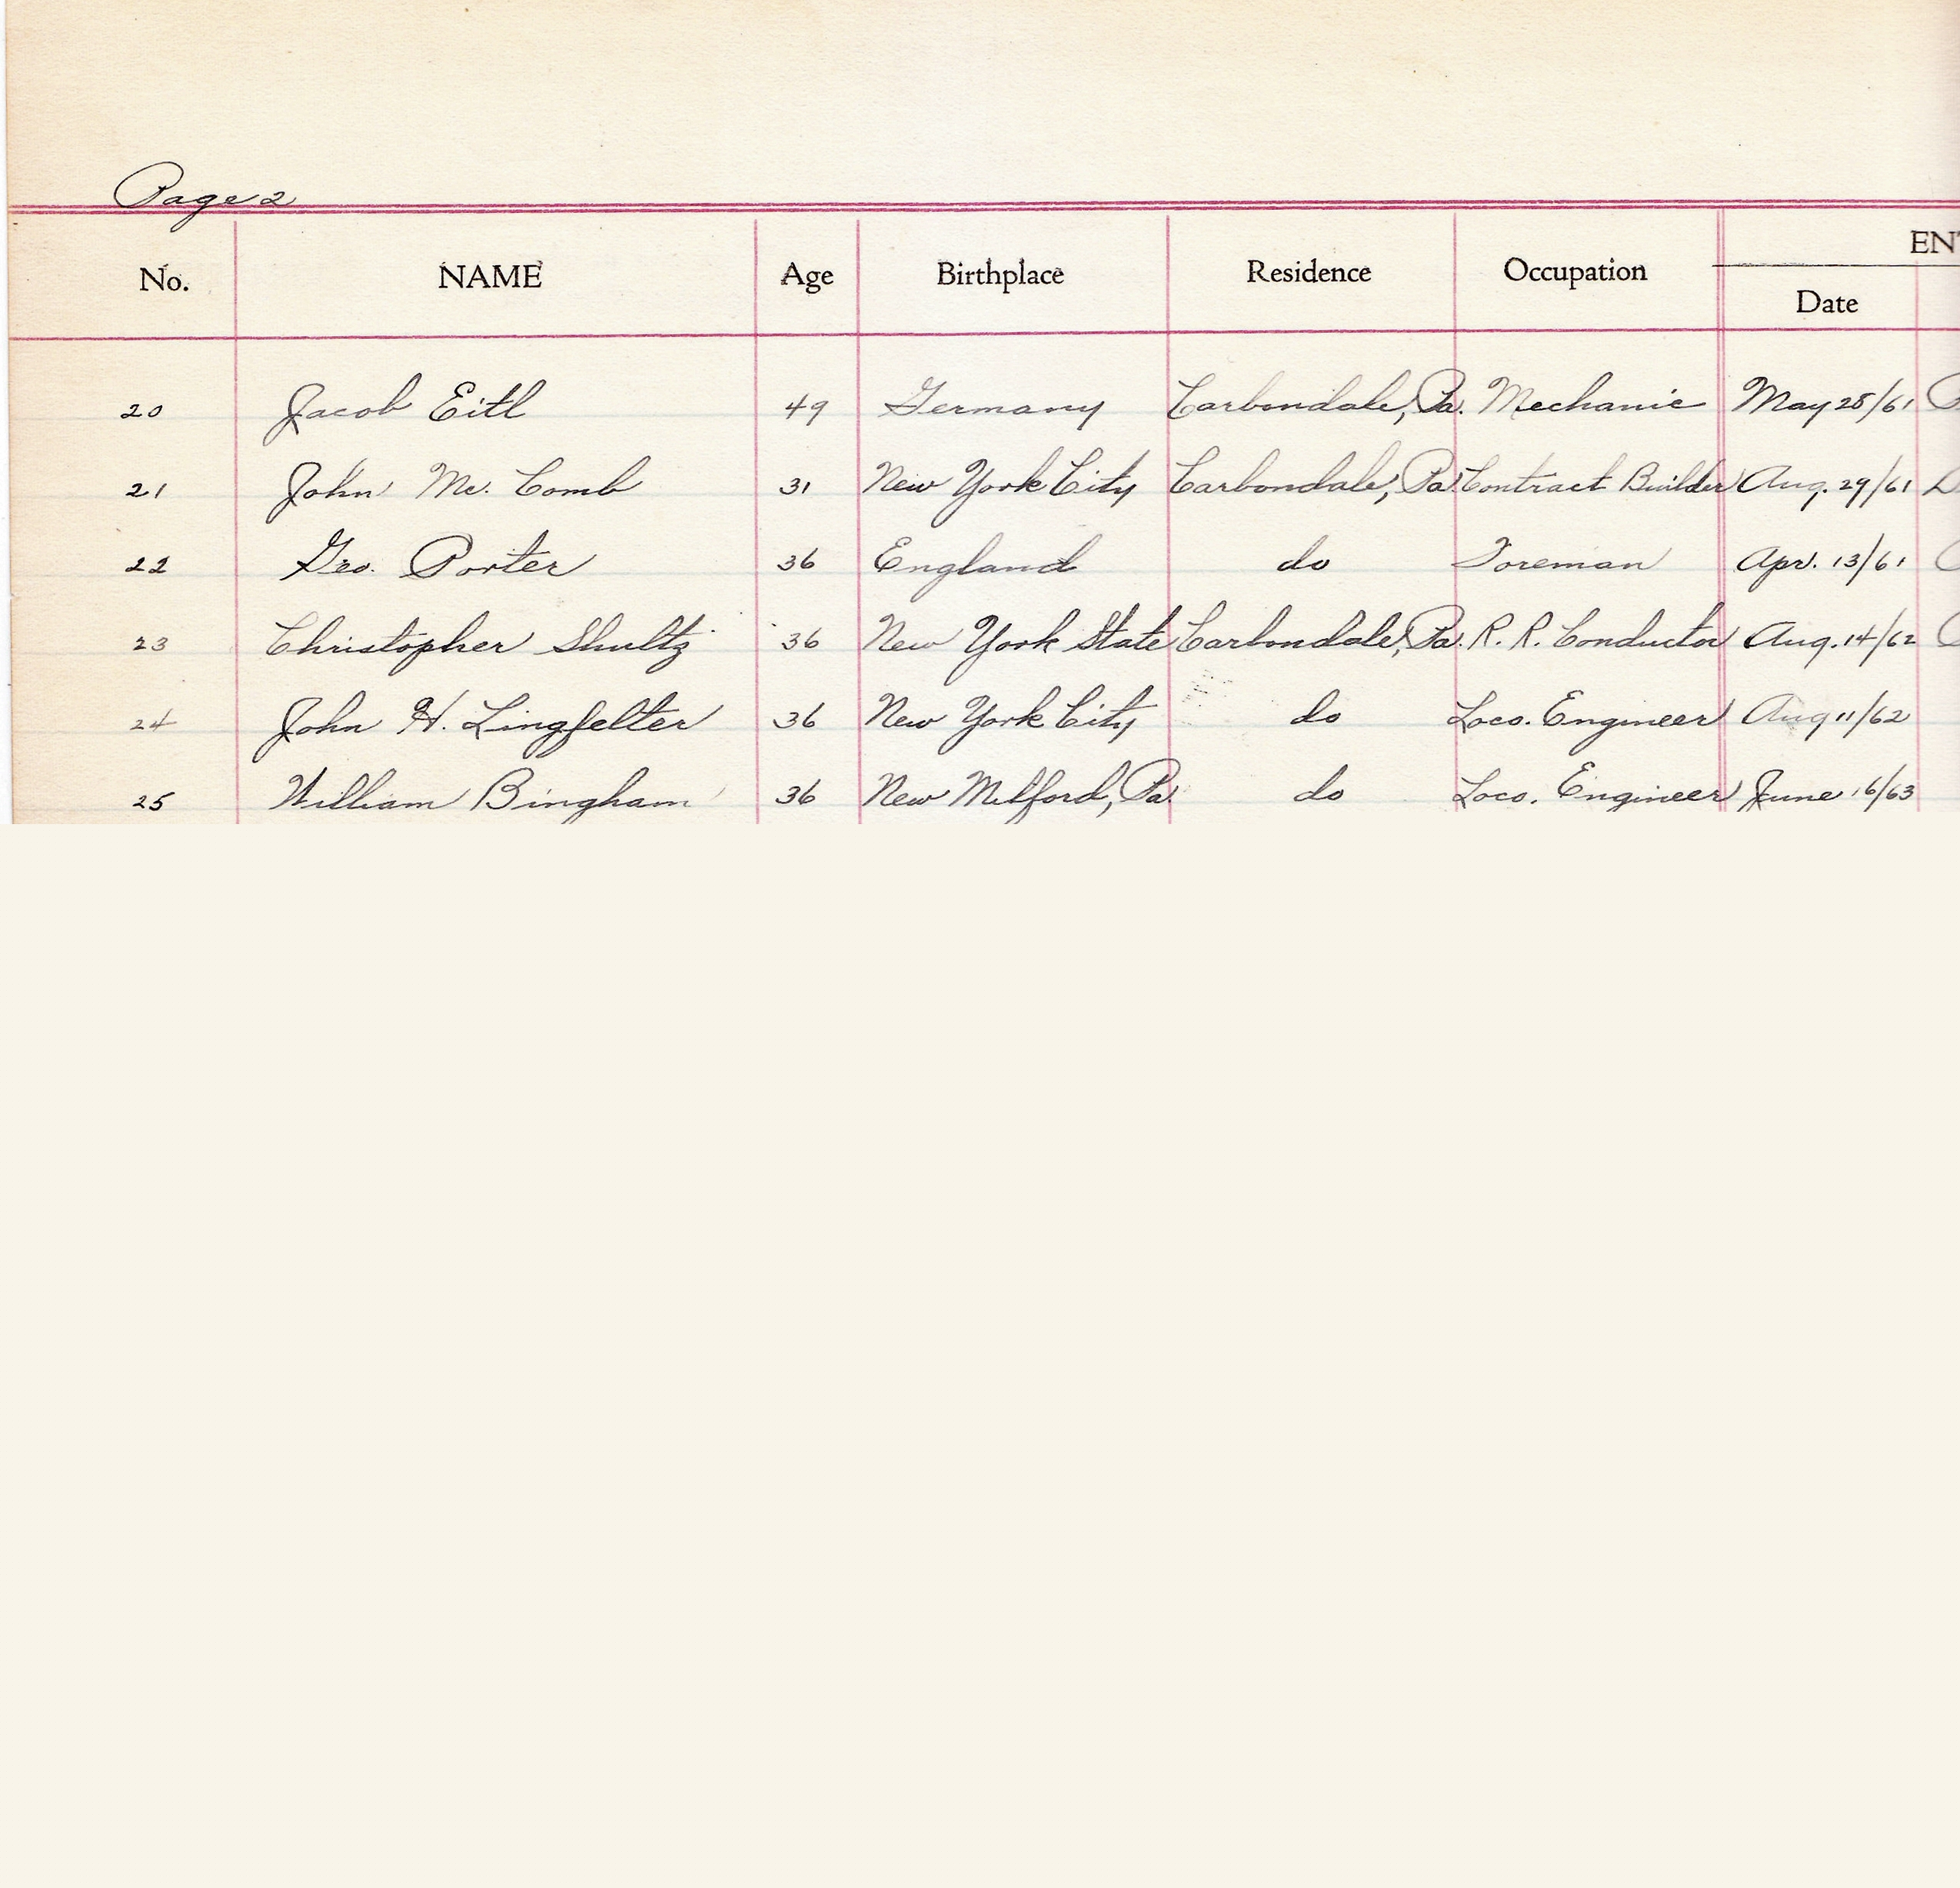 Page 2
No. NAME Age Birthplace Residence Occupation Date
20 Jacob Eitl 49 Germany Carbondale, Pa. Mechanic May 28/61
21 John Mc. Comb 31 New York City Carbondale, Pa. Contract Builder Aug. 29/61
22 Geo. Porter 36 England do Foreman Apr. 13/61
23 Christopher Shultz 36 New York State Carbondale, Pa. R. R. Conductor Aug. 14/62
24 John H. Lingfelter 36 New York City do Loco. Engineer Aug 11/62
25 William Bingham 36 New Milford, Pa. do Loco. Engineer June 16/63